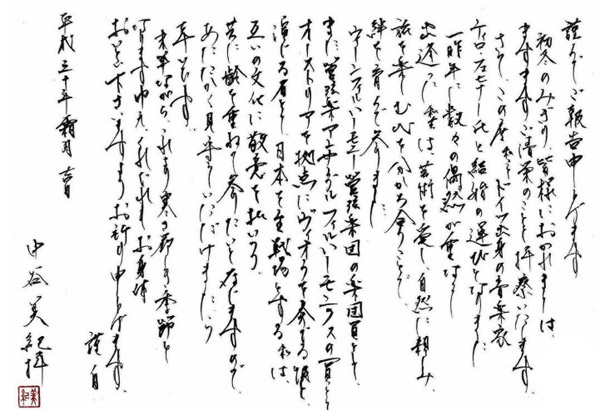 謹んでご報告申し上げます
初冬のみぎり皆様におかれましては
ますますご清栄のことと拝察いたします
さて、この度わたくしドイツ出身の音楽家
ティロ・フェヒナー氏と結婚の運びとなりました
一昨年に数々の偶然が重なり
出逢った私たちは芸術を愛し、自然に親しみ
旅を楽しむ心を分かち合うことで
絆を育んで参りました
ウィーンフィルハーモニー管弦楽団の楽団員として
また、管弦楽アンサンブルフィルハーモニクスの一員として
オーストリアを拠点にヴィオラを奏する彼と
演じる者として日本を主戦場とする私は
互いの文化に敬意を払いつつ
共に齢を重ねて参りたいと存じますので
あたたかく見守っていただけましたら
幸いです
末筆ながらこれより寒さ厳しき季節と
なります ゆえ くれぐれもお身体
おいとい下さいますようお祈り申し上げます
謹白
平成三十年霜月 吉日
中谷美紀 拝
美紀